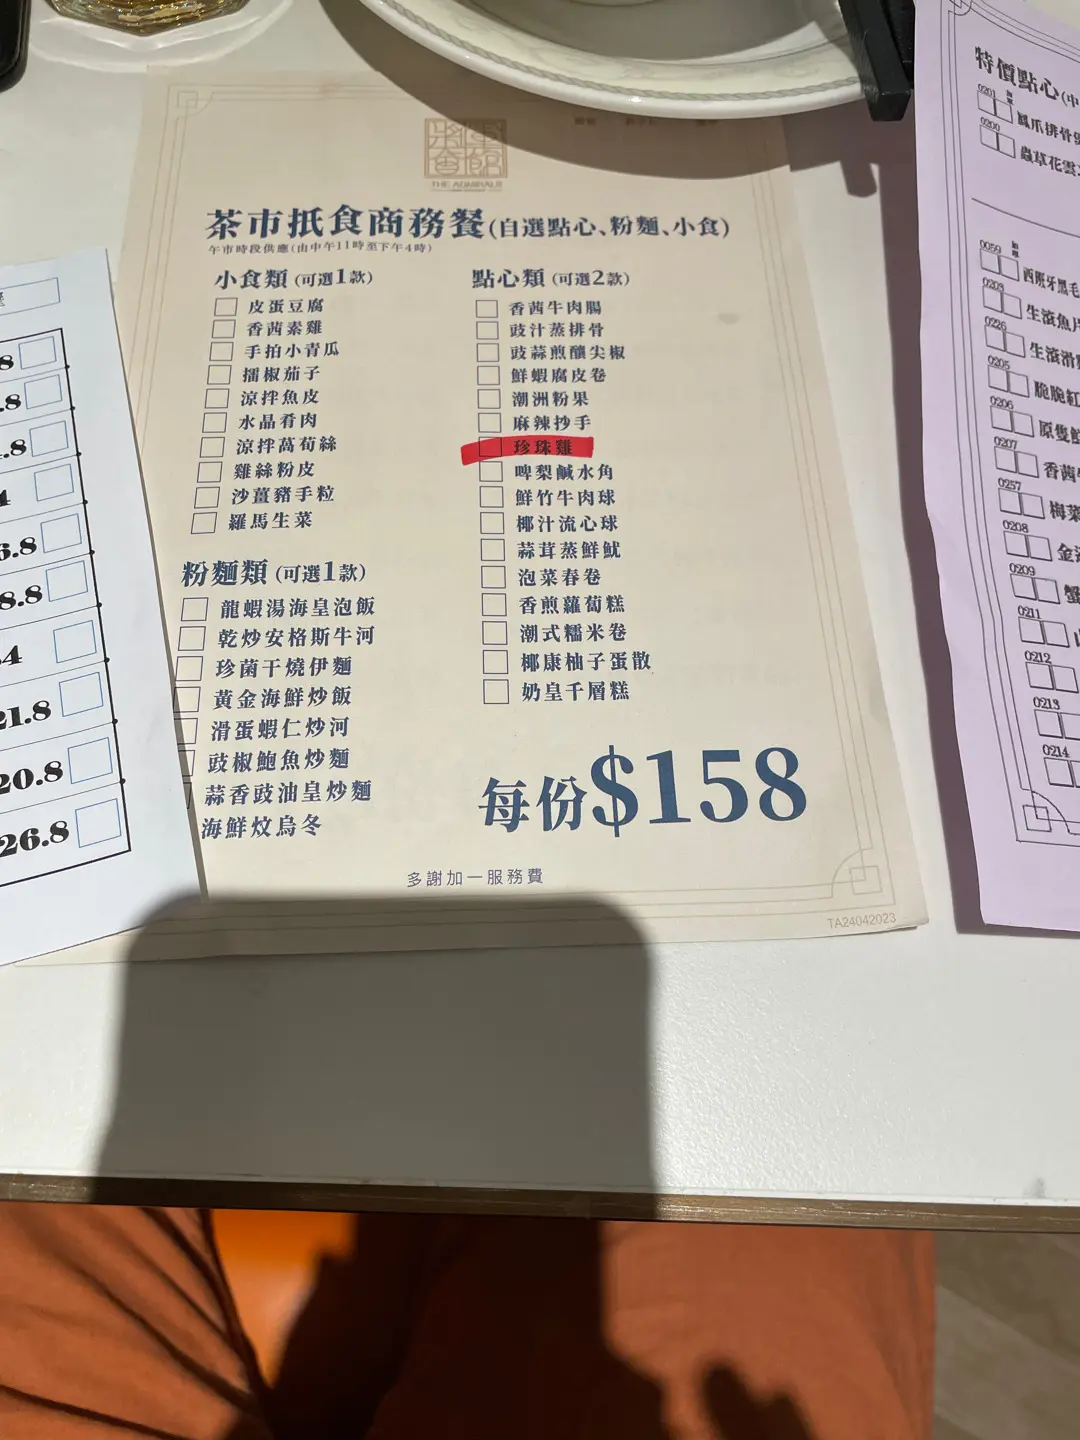 THE ADMIRALTY
茶市抵食商務餐(自選點心、粉麵、小食)
午市時段供應(由中午11時至下午4時)
小食類 (可選1款)
皮蛋豆腐
香茜素雞
手拍小青瓜
擂椒茄子
涼拌魚皮
水晶肴肉
涼拌萵荀絲
雞絲粉皮
沙薑豬手粒
羅馬生菜
粉麵類 (可選1款)
龍蝦湯海皇泡飯
乾炒安格斯牛河
珍菌干燒伊麵
黃金海鮮炒飯
滑蛋蝦仁炒河
豉椒鮑魚炒麵
蒜香豉油皇炒麵
海鮮炆烏冬
點心類 (可選2款)
香茜牛肉腸
豉汁蒸排骨
豉蒜煎釀尖椒
鮮蝦腐皮卷
潮洲粉果
麻辣抄手
珍珠雞
啤梨鹹水角
鮮竹牛肉球
椰汁流心球
蒜茸蒸鮮魷
泡菜春卷
香煎蘿蔔糕
潮式糯米卷
椰康柚子蛋散
奶皇千層糕
每份$158
多謝加一服務費
TA24042023
21.8
20.8
26.8
特價點心(中
0201
鳳爪排骨
0200
蟲草花雲
0059
西班牙黑毛
0203
生滾魚片
0226
生滾滑
0205
脆脆紅
0206
原隻鮑
0207
香茜
0257
梅菜
0208
金
0209
蟹
0211
0212
0213
0214